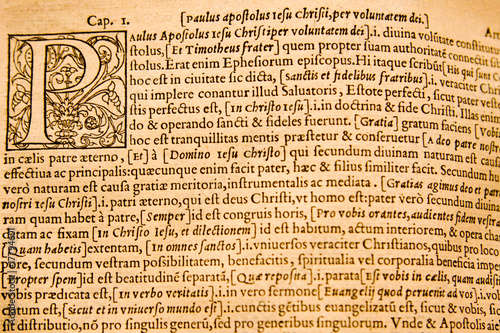 Cap. 1. [Paulus apostolus Iesu Christi, per voluntatem dei.]
Paulus Apostolus Iesu Christi per voluntatem dei.] .i. diuina volūtate constitut
stolus, [Et Timotheus frater] quem propter suam authoritatē connectit
stolus. Erat enim Ephesiorum episcopus. Hi itaque scribūt [His qui sunt
hoc est in ciuitate sic dicta, [Sanctis et fidelibus fratribus] .i. veraciter Chri
qui implere conantur illud Saluatoris, Estote perfecti, sicut pater vest
stis perfectus est, [In Christo Iesu] .i. in doctrina & fide Christi. Illas enim
do & operando sancti & fideles fuerunt. [Gratia] gratum faciens [Vobis
hoc est tranquillitas mentis præstetur & conseruetur [A deo patre nostr
in cælis patre æterno, [Et] à [Domino Iesu Christo] qui secundum diuinam naturam est causa
effectiua ac principalis: quæcunque enim facit pater, hæc & filius similiter facit. Secundum h
verò naturam est causa gratiæ meritoria, instrumentalis ac mediata. [Gratias agimus deo et patri
nostri Iesu Christi] .i. patri æterno, qui est deus Christi, vt homo est: pater verò secundum diuin
ram quam habet à patre, [Semper] id est congruis horis, [Pro vobis orantes, audientes fidem vestra
tam ac fixam [In Christo Iesu, et dilectionem] id est habitum, actum interiorem, & opera cha
[Quam habetis] extentam, [In omnes sanctos] .i. vniuersos veraciter Christianos, quibus pro loco
re, secundum vestram possibilitatem, benefacitis, spiritualia vel corporalia beneficia impen
[Propter spem] id est beatitudinē separatā, [Quæ reposita] .i. parata [Est vobis in cœlis, quam audisti
bis prædicata est, [in verbo veritatis] .i. in vero sermone [Euangelij quod peruenit ad vos] .i. vo
tum est, [sicut et in vniuerso mundo est] .i. sicut cūctis gentibus euangelizatū est, sicut & vobis
sit distributio, nō pro singulis generū, sed pro generibus singulorum. Vnde & Apostol